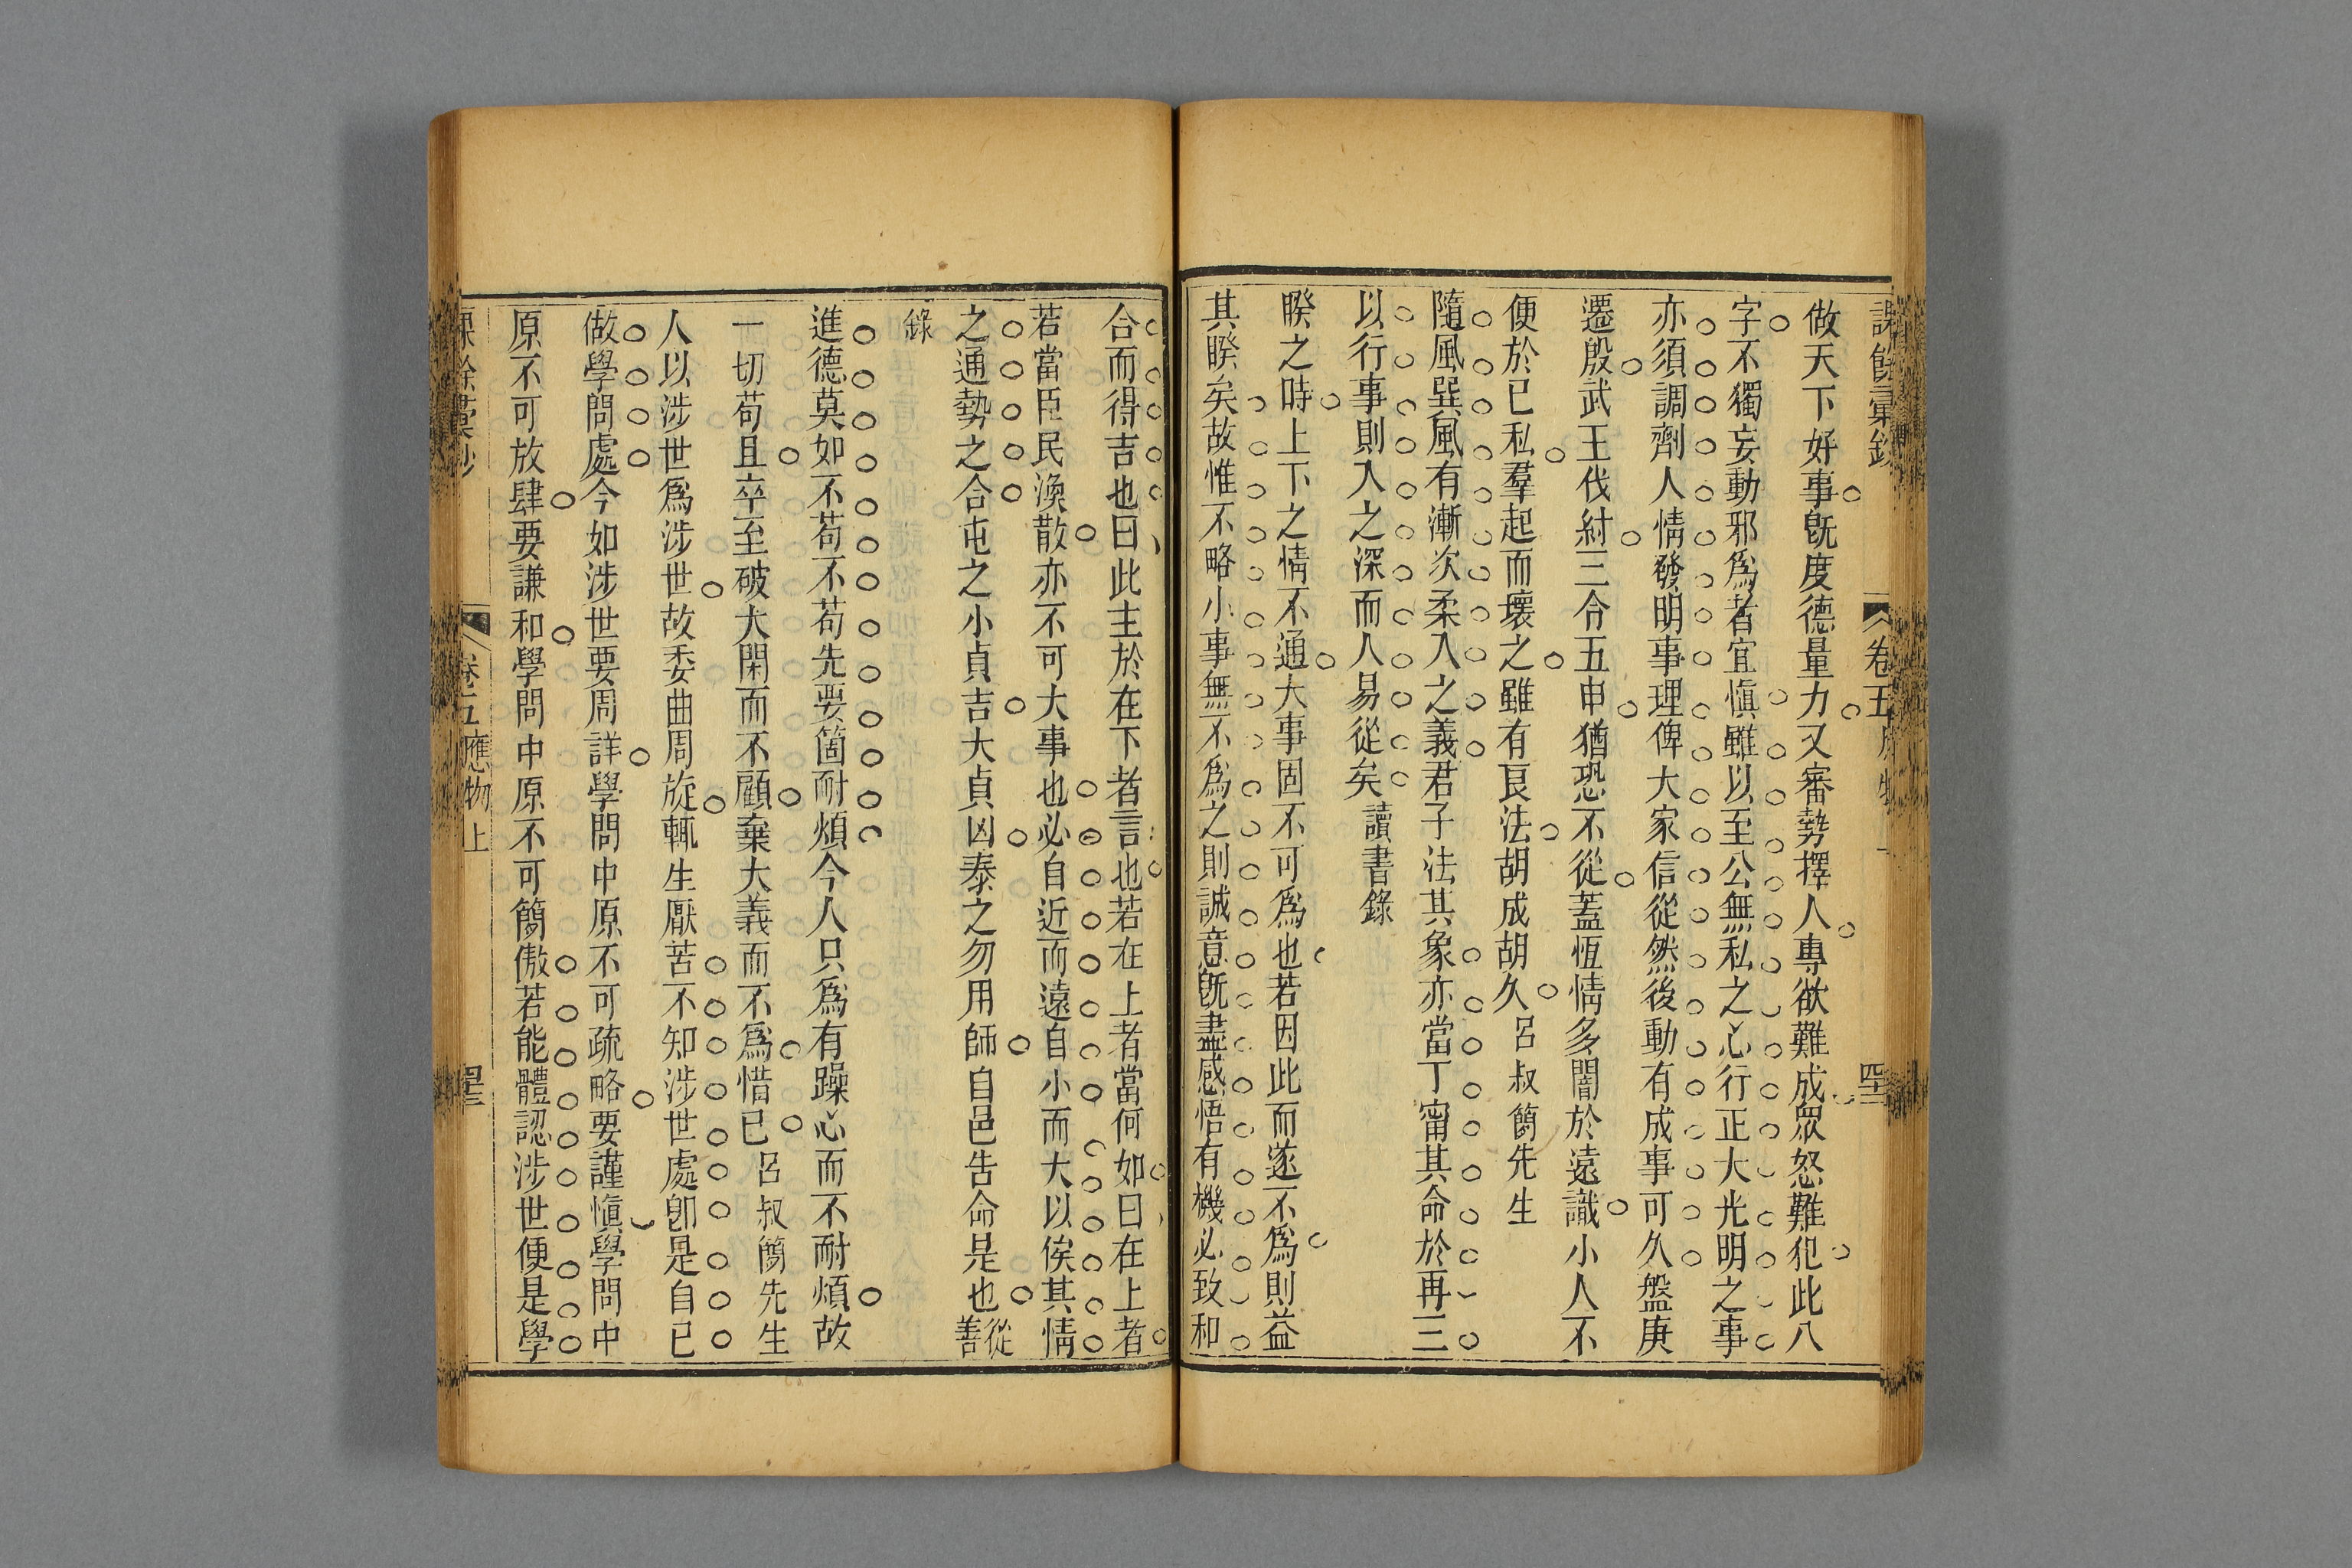 卷五
做天下好事旣度德量力又審勢擇人專欲難成眾怒難犯此八
字不獨妄動邪爲者宜愼雖以至公無私之心行正大光明之事
亦須調劑人情發明事理俾大家信從然後動有成事可久盤庚
遷殷武王伐紂三令五申猶恐不從蓋恆情多闇於遠識小人不
便於已私羣起而壞之雖有良法胡成胡久 呂叔簡先生
隨風巽風有漸次柔入之義君子法其象亦當丁甯其命於再三
以行事則入之深而人易從矣 讀書錄
睽之時上下之情不通大事固不可爲也若因此而遂不爲則益
其睽矣故惟不略小事無不爲之則誠意旣盡感悟有機必致和
合而得吉也曰此主於在下者言也若在上者當何如曰在上者
若當臣民渙散亦不可大事也必自近而遠自小而大以俟其情
之通勢之合屯之小貞吉大貞凶泰之勿用師自邑告命是也 從善
錄
進德莫如不苟不苟先要箇耐煩今人只爲有躁心而不耐煩故
一切苟且卒至破大閑而不顧棄大義而不爲惜已 呂叔簡先生
人以涉世爲涉世故委曲周旋輒生厭苦不知涉世處卽是自已
做學問處今如涉世要周詳學問中原不可疏略要謹愼學問中
原不可放肆要謙和學問中原不可簡傲若能體認涉世便是學
卷五 應物上